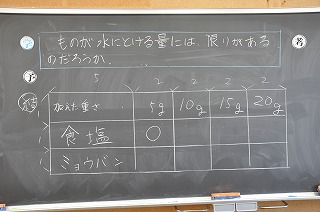 ものが水にとける量には、限りがある
のだろうか。
5 2 2 2 2
加えた重さ 5g 10g 15g 20g
食塩 ○
ミョウバン